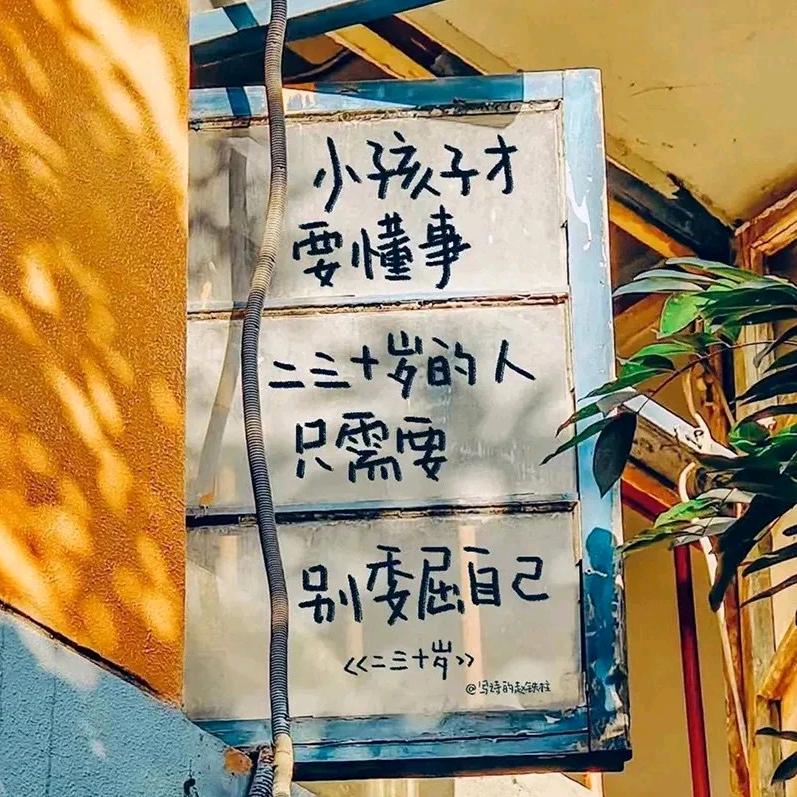 小孩子才
要懂事
二三十岁的人
只需要
别委屈自己
<<二三十岁>>
@写诗的赵铁柱